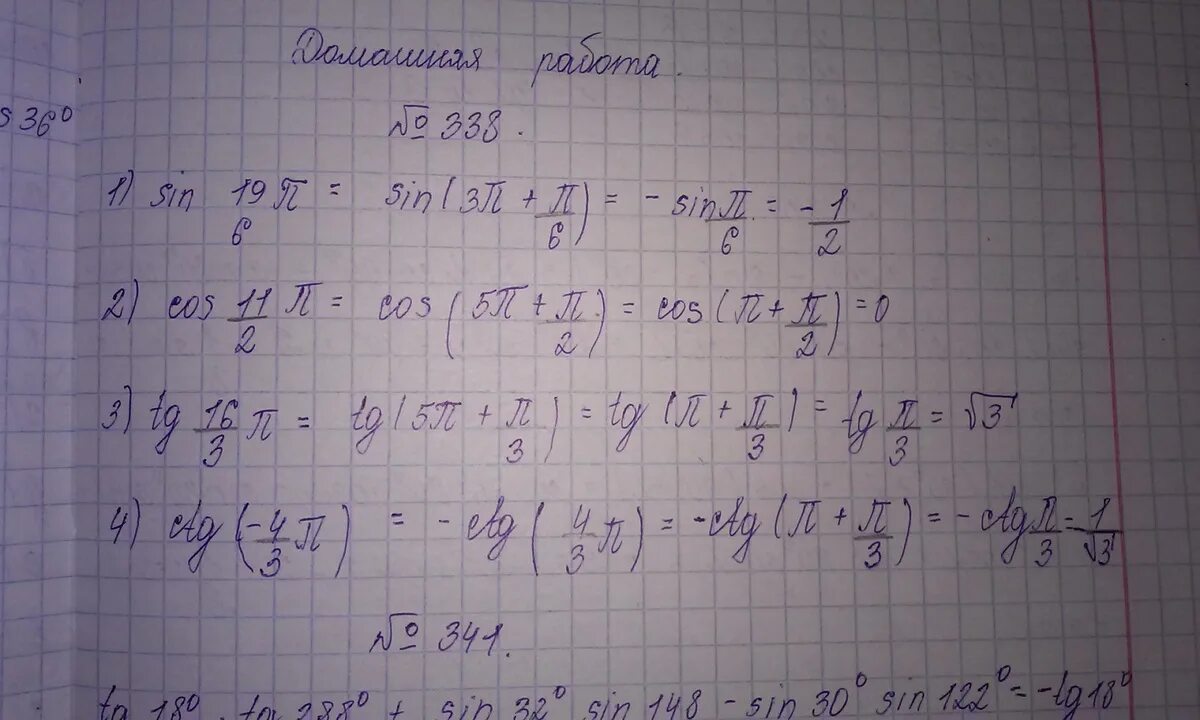 Домашняя работа.
s 36°
№ 338.
1) sin 19/6 π = sin(3π + π/6) = - sin π/6 = - 1/2
2) cos 11/2 π = cos(5π + π/2) = cos(π + π/2) = 0
3) tg 16/3 π = tg(5π + π/3) = tg(π + π/3) = tg π/3 = √3
4) ctg(-4/3 π) = - ctg(4/3 π) = - ctg(π + π/3) = - ctg π/3 = 1/√3
№ 341.
tg 18° · tg 288° + sin 32° sin 148 - sin 30° sin 122° = - tg 18°